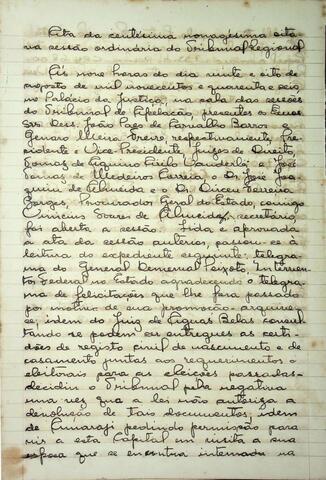 Ata da centésima nonagésima oita
va sessão ordinária do Tribunal Regional
Ás nove horas do dia vinte e oito de
agosto de mil novecentos e quarenta e seis,
no Palácio da Justiça, na sala das sessões
do Tribunal de Apelação, presentes os Exmos
Srs. Des. João Paes de Carvalho Barros e
Genaro Freire, respectivamente, Presi
dente e Vice-Presidente, Juizes de Direito,
Tomaz de Aquino Cirilo Wanderlei e José
Tomaz de Medeiros Correia, o Dr. José Joa
quim de Almeida e o Dr. Dirceu Ferreira
Borges, Procurador Geral do Estado, comigo
Vinicius Soares de Almeida, secretário,
foi aberta a sessão. Lida e aprovada
a ata da sessão anterior, passou-se à
leitura do expediente seguinte: telegra
ma do General Demerval Peixoto, Interven
tor Federal no Estado agradecendo o telegra
ma de felicitações que lhe fora passado
por motivo de sua promoção - arquive-
se; idem do Juiz de Aguas Belas consul
tando se podem ser entregues as certi
dões de registo civil de nascimento e de
casamento juntas aos requerimentos
eleitorais para as eleições passadas -
decidiu o Tribunal pela negativa
uma vez que a lei não autoriza a
devolução de tais documentos; idem
de Amaraji pedindo permissão para
vir a esta Capital em visita a sua
esposa que se encontra internada na